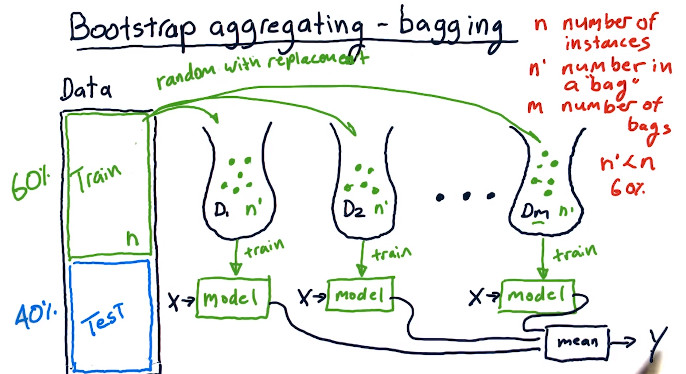 Bootstrap aggregating - bagging
n number of
instances
n' number in
a "bag"
m number of
bags
n'<n
60%
random with replacement
Data
60%
Train
n
40%
TesT
D1 n'
D2 n'
Dm n'
train
train
train
X→ model
X→ model
X→ model
mean → Y